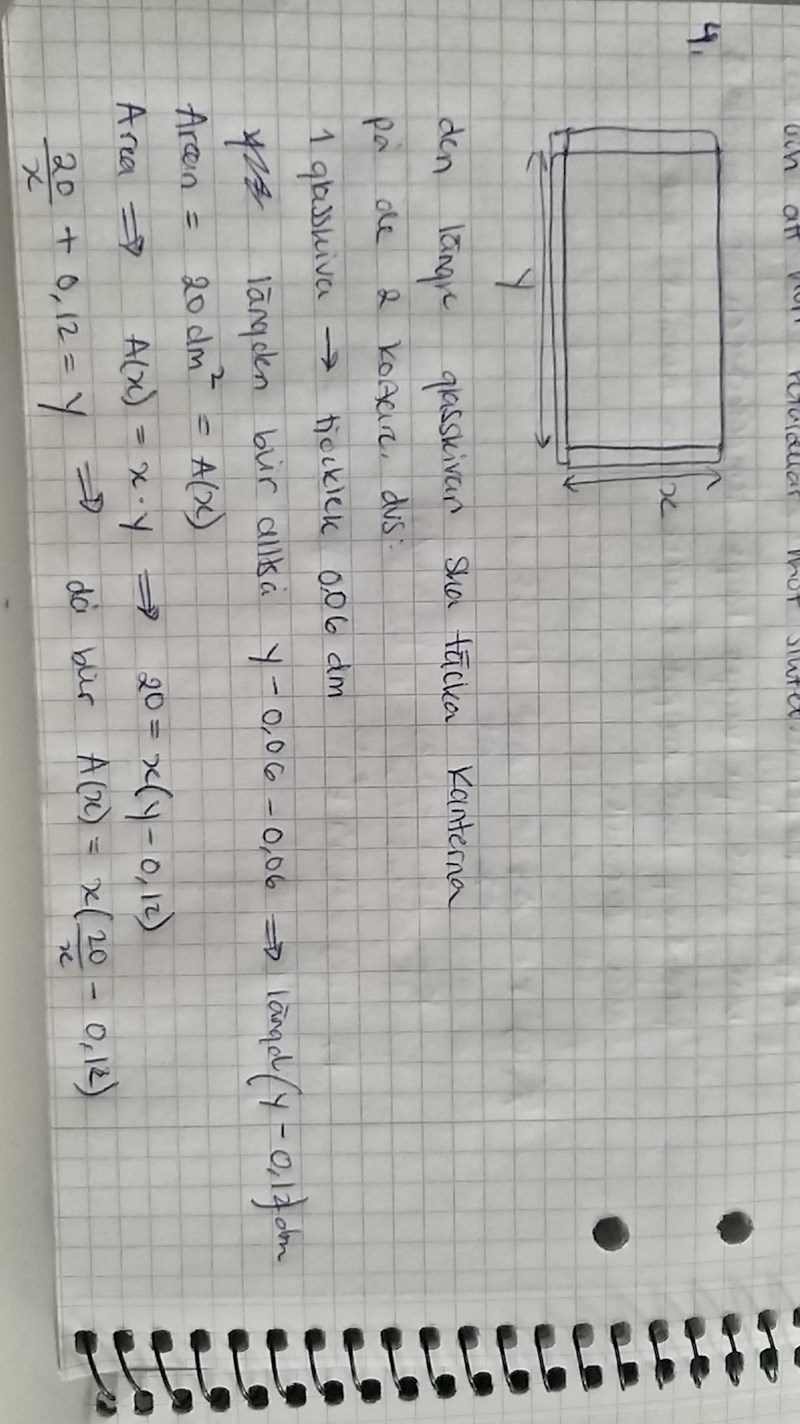 och att
4.
x
y
den längre glasskivan ska täcka kanterna
på de 2 korta, dvs:
1 glasskiva → tjocklek 0,06 dm
längden blir alltså y - 0,06 - 0,06 ⇒ längd (y - 0,12) dm
Arean = 20 dm² = A(x)
Area ⇒ A(x) = x · y ⇒ 20 = x(y - 0,12)
20/x + 0,12 = y ⇒ då blir A(x) = x(20/x - 0,12)